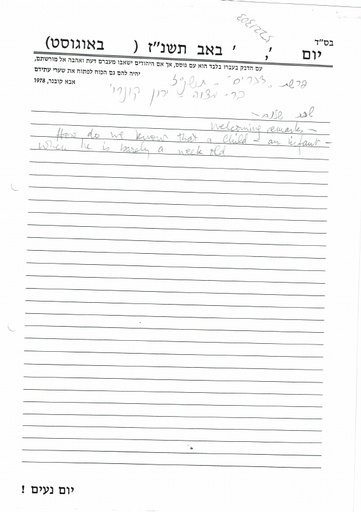 בס"ד
יום ', ' באב תשנ"ז ( באוגוסט)
עם הדבק בעברו בלבד הוא עם גוסס, אך אם היהודים ישאבו מעברם דעת ואהבה אל מורשתם,
יהיה להם גם הכוח לפתוח את שערי עתידם
אבא קובנר, 1978
פרשת "דברים" - תשנ"ז
בר - מצוה - ירון
שבת שלום -
Welcoming remarks -
How do we know that a child - an infant -
when he is barely a week old
יום נעים !